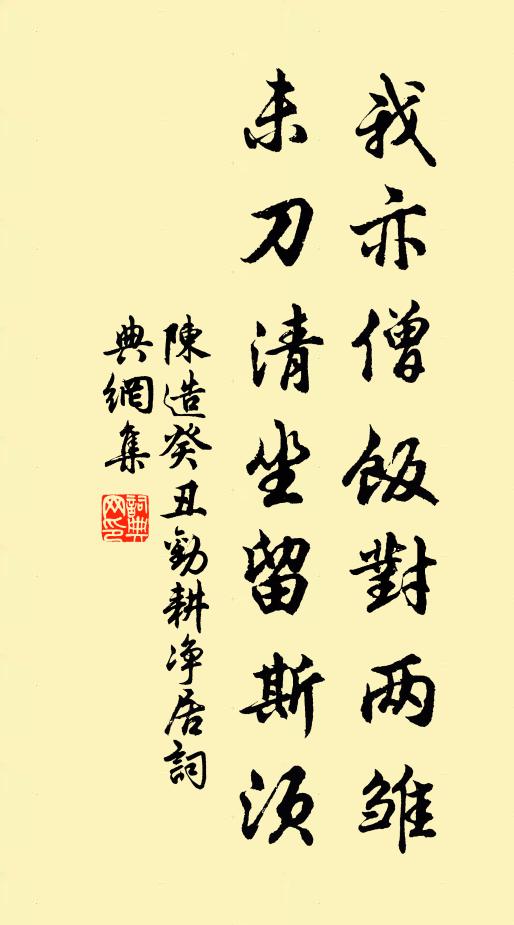 我亦僧飯對两雏
未刀清坐留斯須
陳造癸丑勸耕净居詞
典網集
詞典
网印